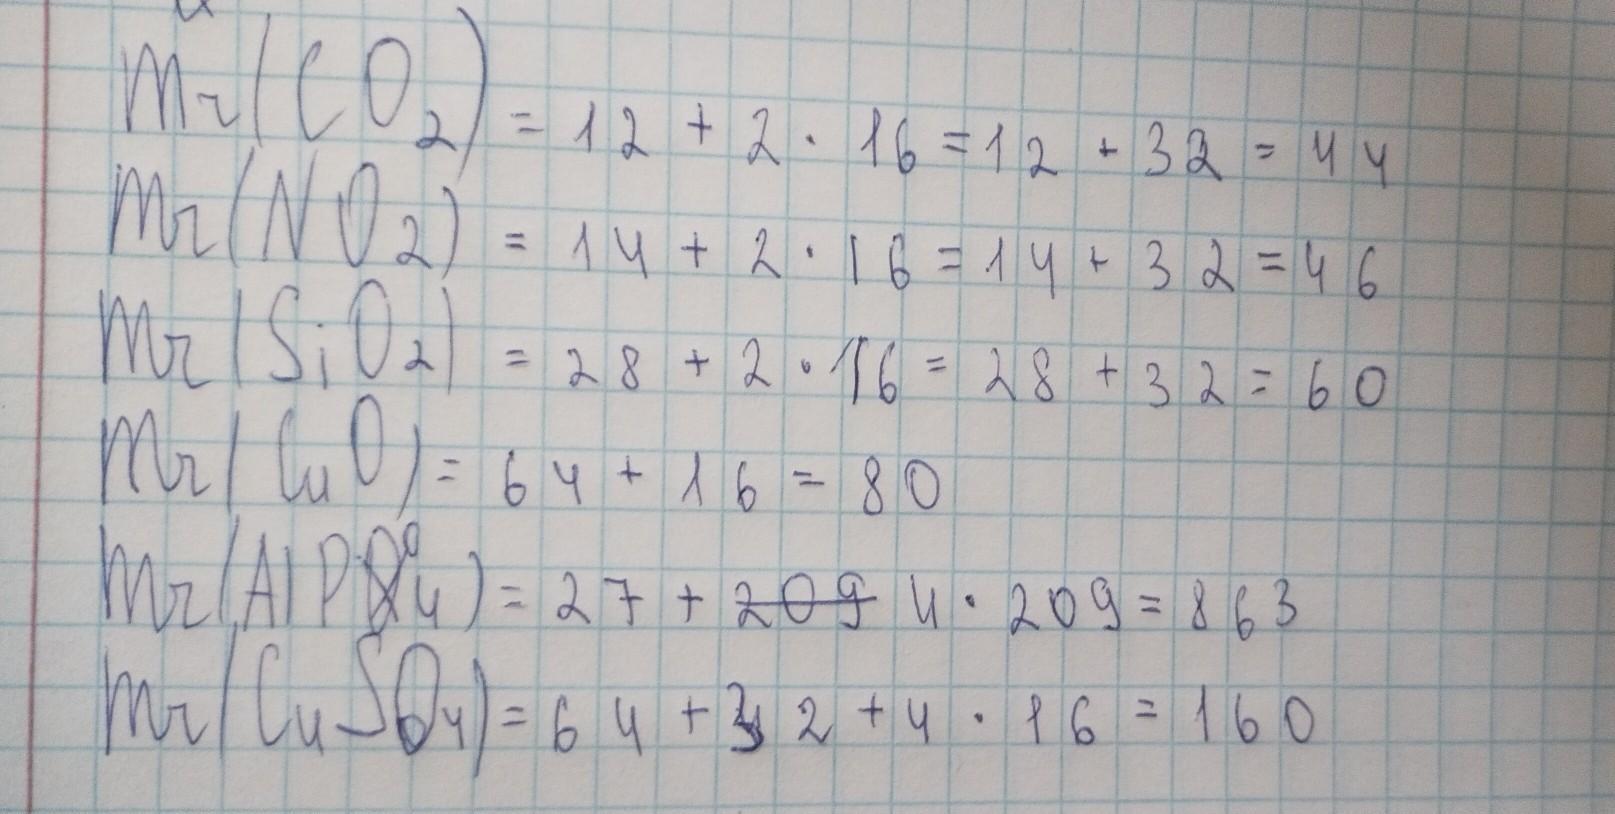 Mr(CO2) = 12 + 2 · 16 = 12 + 32 = 44
Mr(NO2) = 14 + 2 · 16 = 14 + 32 = 46
Mr(SiO2) = 28 + 2 · 16 = 28 + 32 = 60
Mr(CuO) = 64 + 16 = 80
Mr(AlPO4) = 27 + 209 4 · 209 = 863
Mr(CuSO4) = 64 + 32 + 4 · 16 = 160